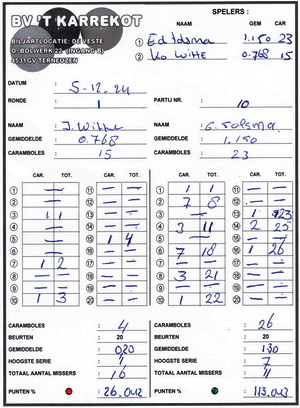 BV.'T KARREKOT
BILJARTLOCATIE: DE VESTE
D. BOLWERK 22 (INGANG B)
4531GV TERNEUZEN
SPELERS :
NAAM GEM CAR
1 1.150 23
2 Ko Witte 0.768 15
DATUM : 5-12-24
RONDE : 1 PARTIJ NR. : 10
NAAM : J. Witte NAAM :
GEMIDDELDE : 0.768 GEMIDDELDE : 1.150
CARAMBOLES : 15 CARAMBOLES : 23
CAR. TOT. CAR. TOT. CAR. TOT. CAR. TOT.
1 — — 11 — — 1 1 1 11 — —
2 — — 12 — — 2 7 8 12 — —
3 1 1 13 — — 3 — — 13 1 23
4 — — 14 — — 4 3 11 14 2 25
5 — — 15 1 4 5 — — 15 — —
6 — — 16 — — 6 7 18 16 1 26
7 1 2 17 — — 7 — — 17 — —
8 — — 18 — — 8 3 21 18 — —
9 — — 19 — — 9 — — 19 — —
10 1 3 20 — — 10 1 22 20 — —
CARAMBOLES : 4 CARAMBOLES : 26
BEURTEN : 20 BEURTEN : 20
GEMIDDELDE : 0.20 GEMIDDELDE : 1.30
HOOGSTE SERIE : 1 HOOGSTE SERIE : 7
TOTAAL AANTAL MISSERS : 16 TOTAAL AANTAL MISSERS : 11
PUNTEN % : 26.042 PUNTEN % : 113.043